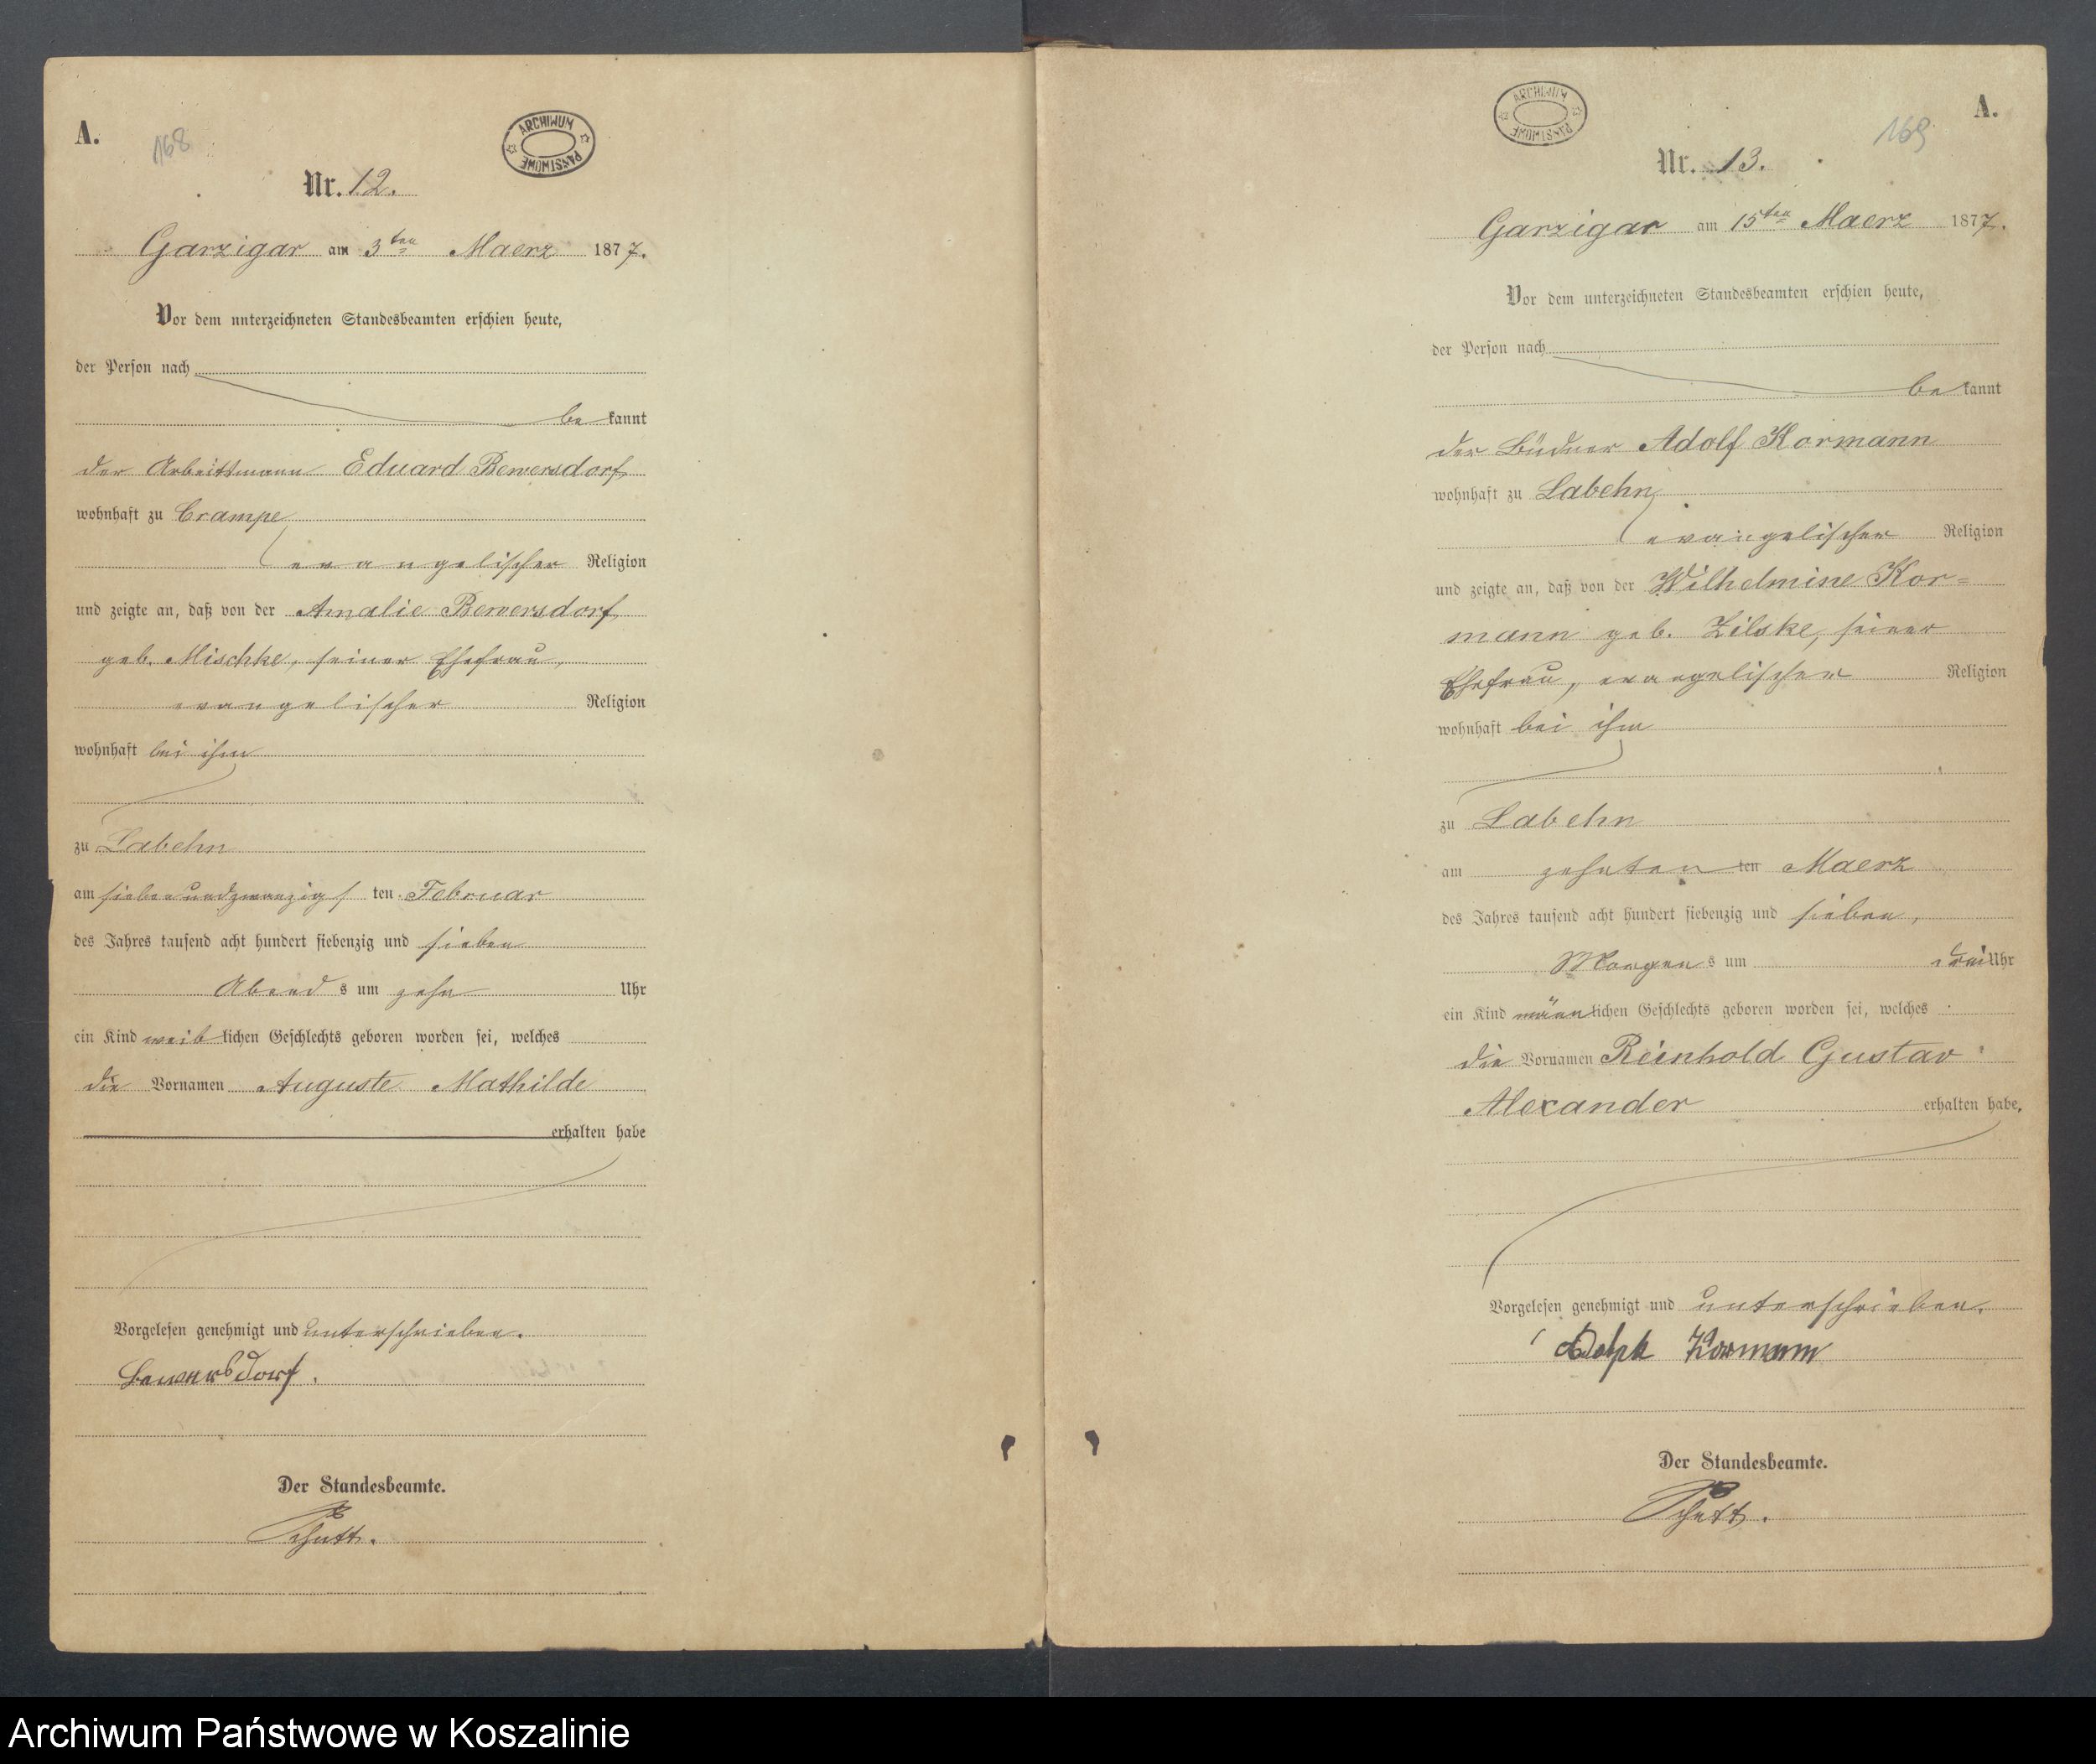 A.
168
ARCHIWUM PAŃSTWOWE
Nr. 12.
Garzigar am 3ten Maerz 1877.
Vor dem unterzeichneten Standesbeamten erschien heute,
der Person nach
be kannt
der Arbeitsmann Eduard Bewersdorf
wohnhaft zu Crampe
evangelischer Religion
und zeigte an, daß von der Amalie Bewersdorf
geb. Mischke, seiner Ehefrau,
evangelischer Religion
wohnhaft bei ihm
zu Labehn
am siebenundzwanzigs ten Februar
des Jahres tausend acht hundert siebenzig und sieben
Abend s um zehn Uhr
ein Kind weib lichen Geschlechts geboren worden sei, welches
die Vornamen Auguste Mathilde
erhalten habe
Vorgelesen genehmigt und unterschrieben.
Bewersdorf.
Der Standesbeamte.
A.
169
ARCHIWUM PAŃSTWOWE
Nr. 13.
Garzigar am 15ten Maerz 1877.
Vor dem unterzeichneten Standesbeamten erschien heute,
der Person nach
be kannt
der Büdner Adolf Kormann
wohnhaft zu Labehn
evangelischer Religion
und zeigte an, daß von der Wilhelmine Kor=
mann geb. Zilske, seiner
Ehefrau, evangelischer Religion
wohnhaft bei ihm
zu Labehn
am zehnten ten Maerz
des Jahres tausend acht hundert siebenzig und sieben,
Morgen s um drei Uhr
ein Kind männ lichen Geschlechts geboren worden sei, welches
die Vornamen Reinhold Gustav
Alexander erhalten habe,
Vorgelesen genehmigt und unterschrieben.
Adolph Kormann
Der Standesbeamte.
Archiwum Państwowe w Koszalinie